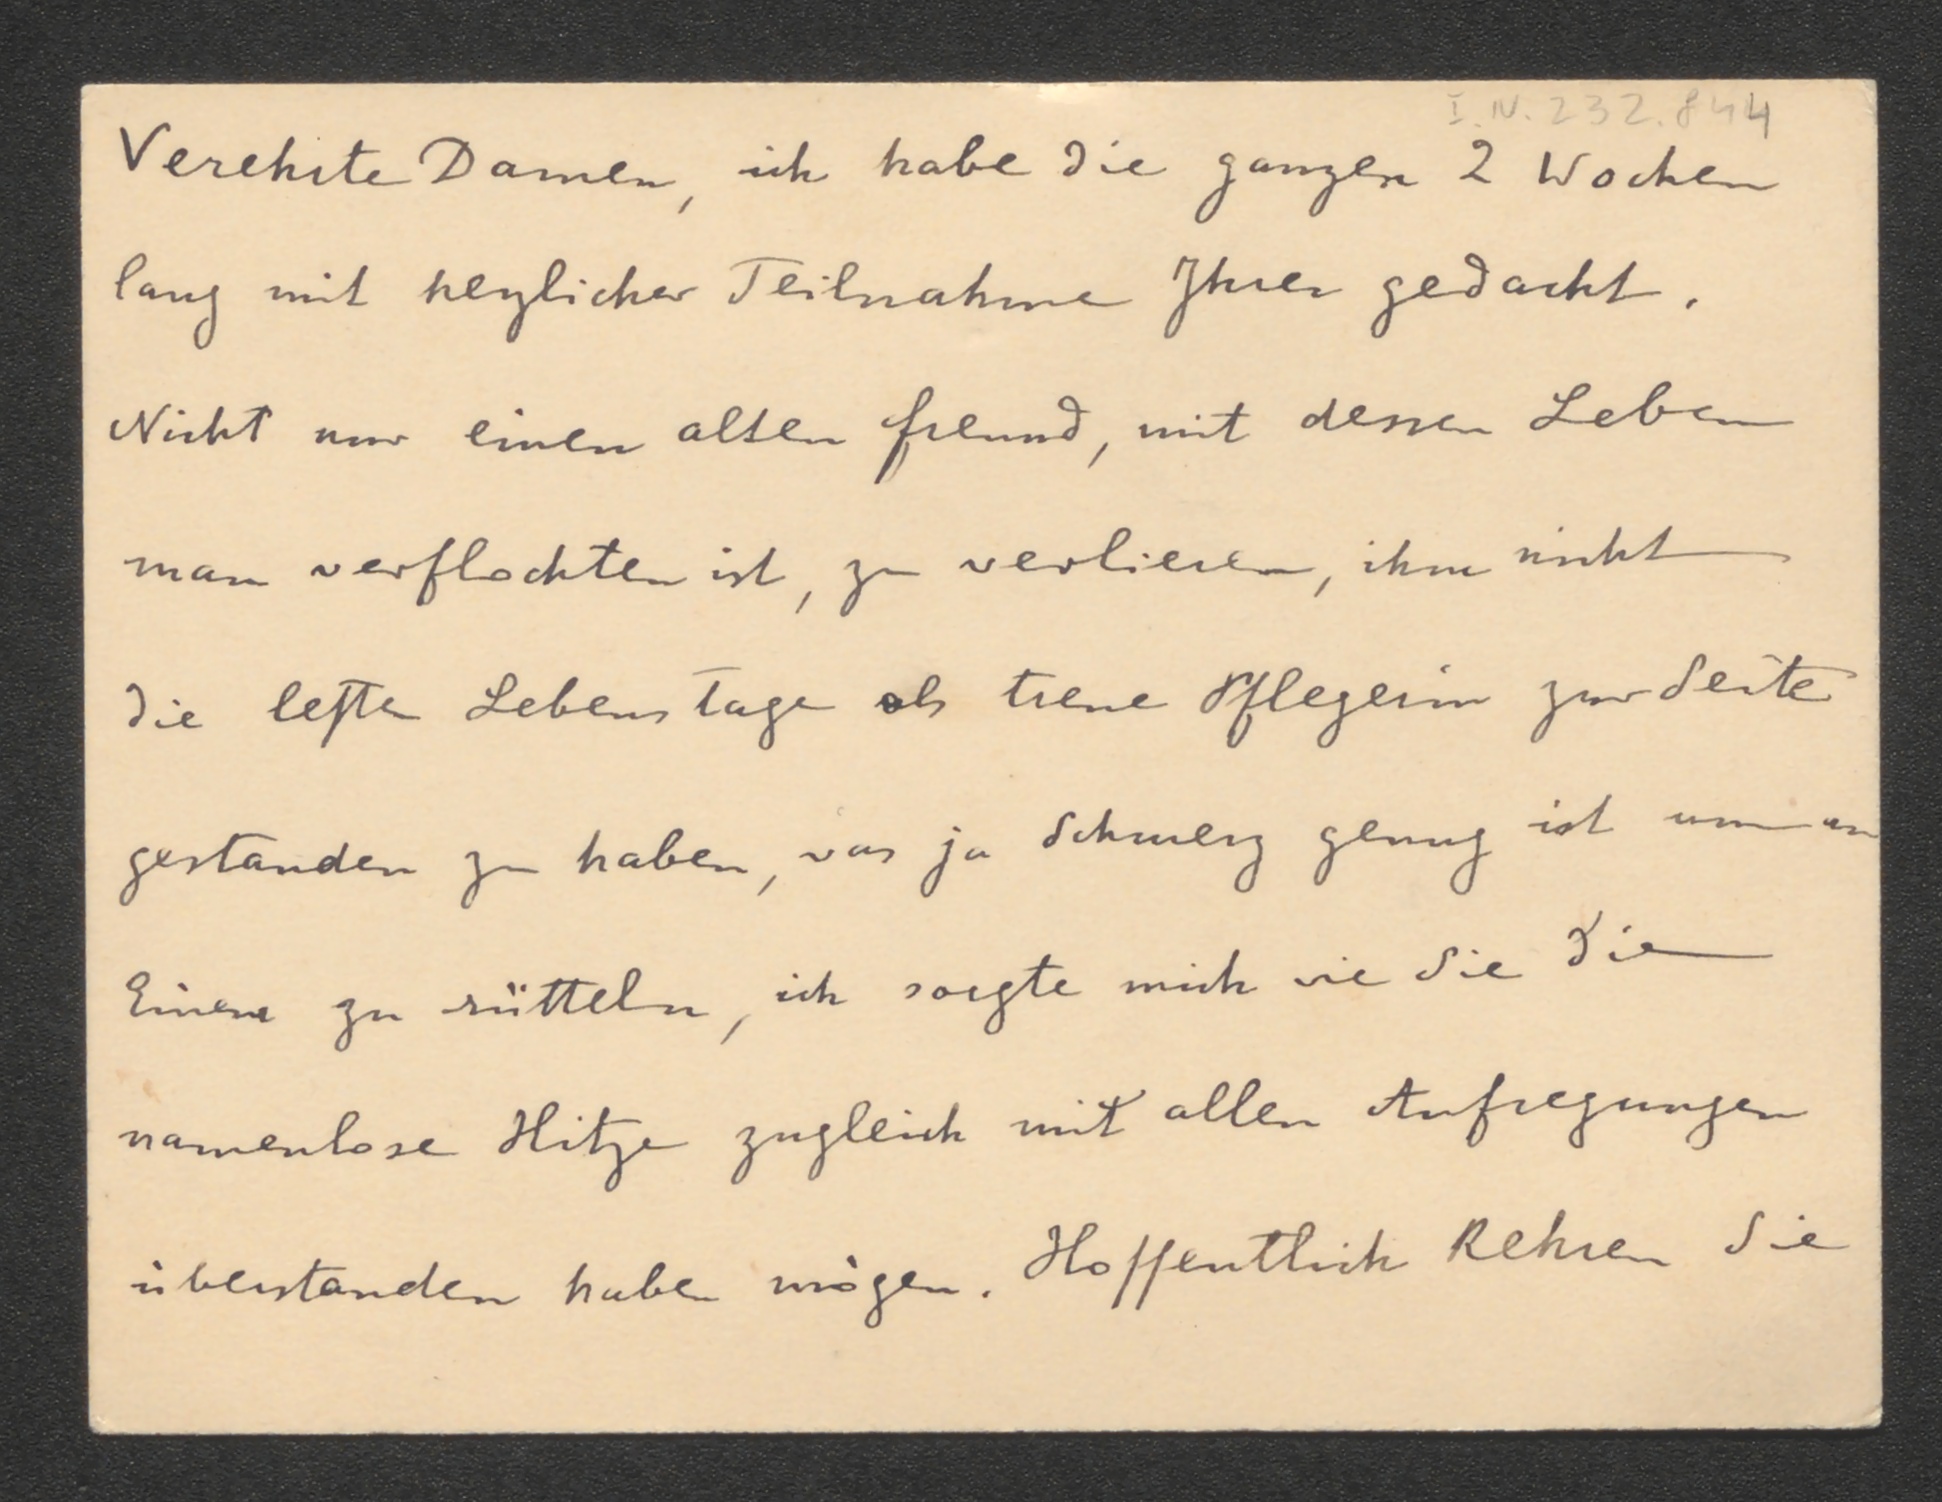 I.N. 232.844
Verehrte Damen, ich habe die ganzen 2 Wochen
lang mit herzlicher Teilnahme Ihrer gedacht.
Nicht nur einen alten Freund, mit dessen Leben
man verflochten ist, zu verlieren, ihm nicht
die letzten Lebenstage als treue Pflegerin zur Seite
gestanden zu haben, was ja Schmerz genug ist um an
Einem zu rütteln, ich sorgte mich wie Sie die
namenlose Hitze zugleich mit allen Aufregungen
überstanden haben mögen. Hoffentlich kehren Sie